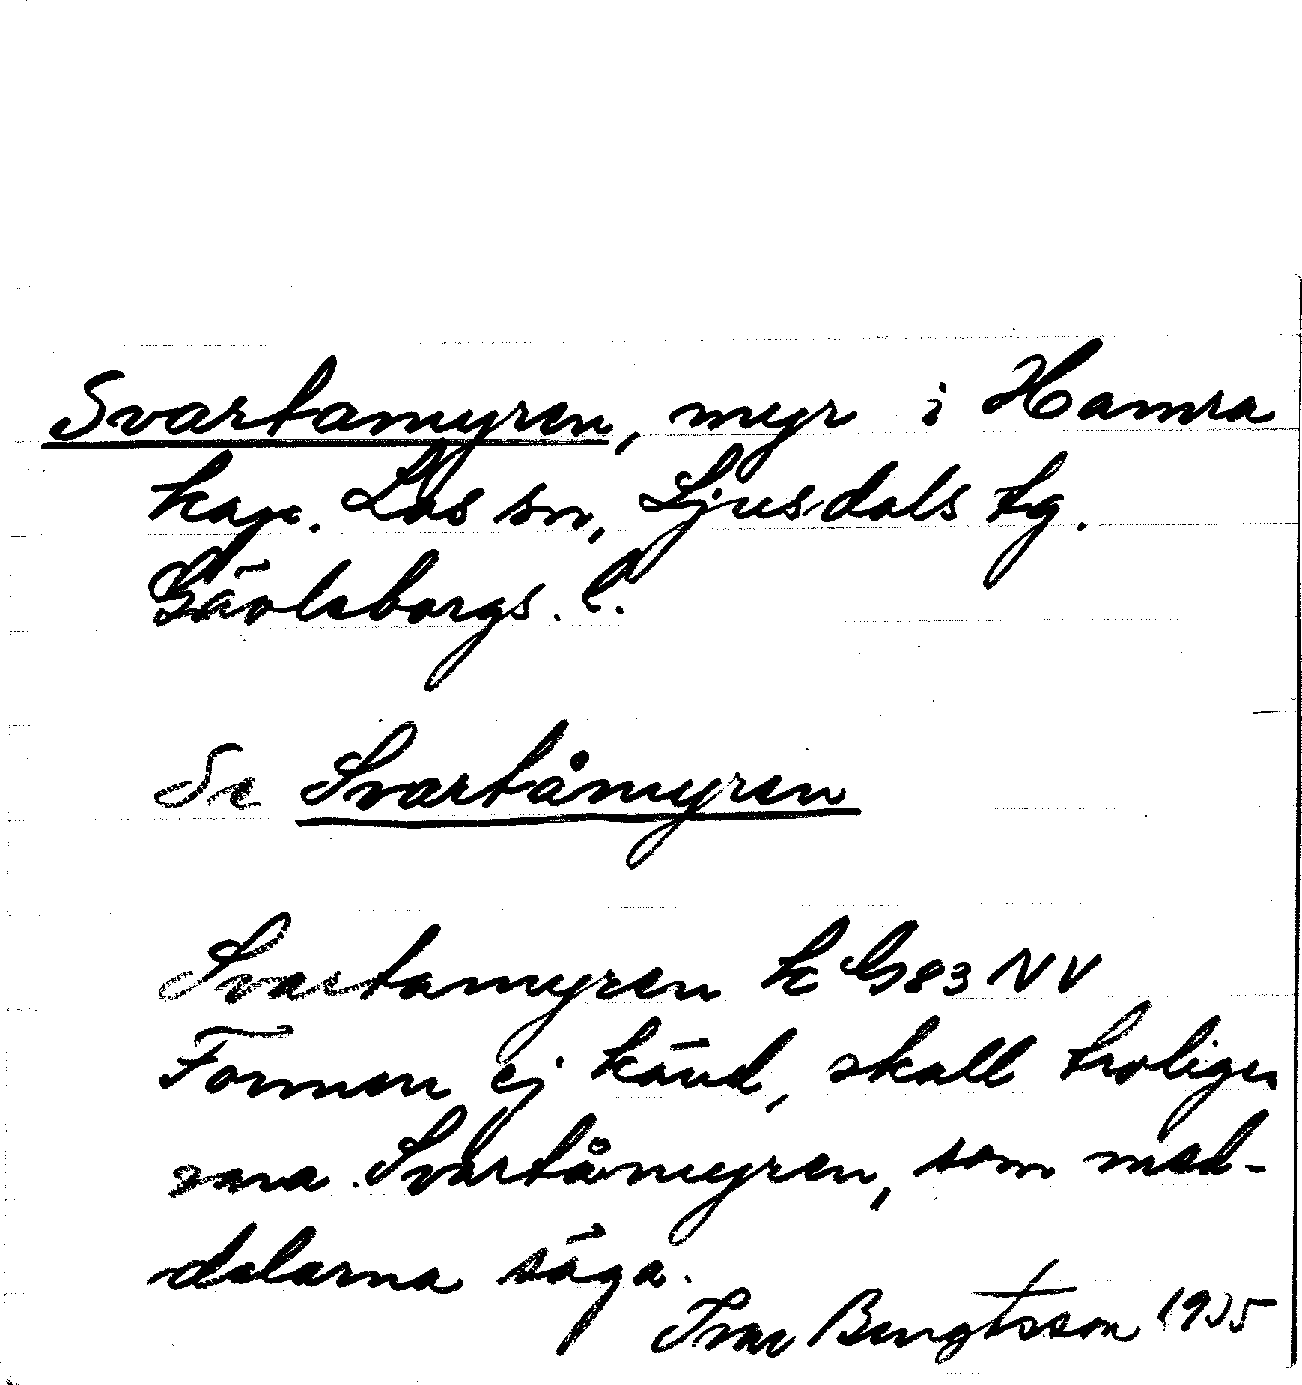 Svartamyren, myr i Hamra
kap. Los sn, Ljusdals tg.
Gävleborgs. l.
Se Svartåmyren
Svartamyren k G83 NV
Formen ej känd, skall troligen
vara Svartåmyren, som med-
delarna säga.
Ivar Bengtsson 1935